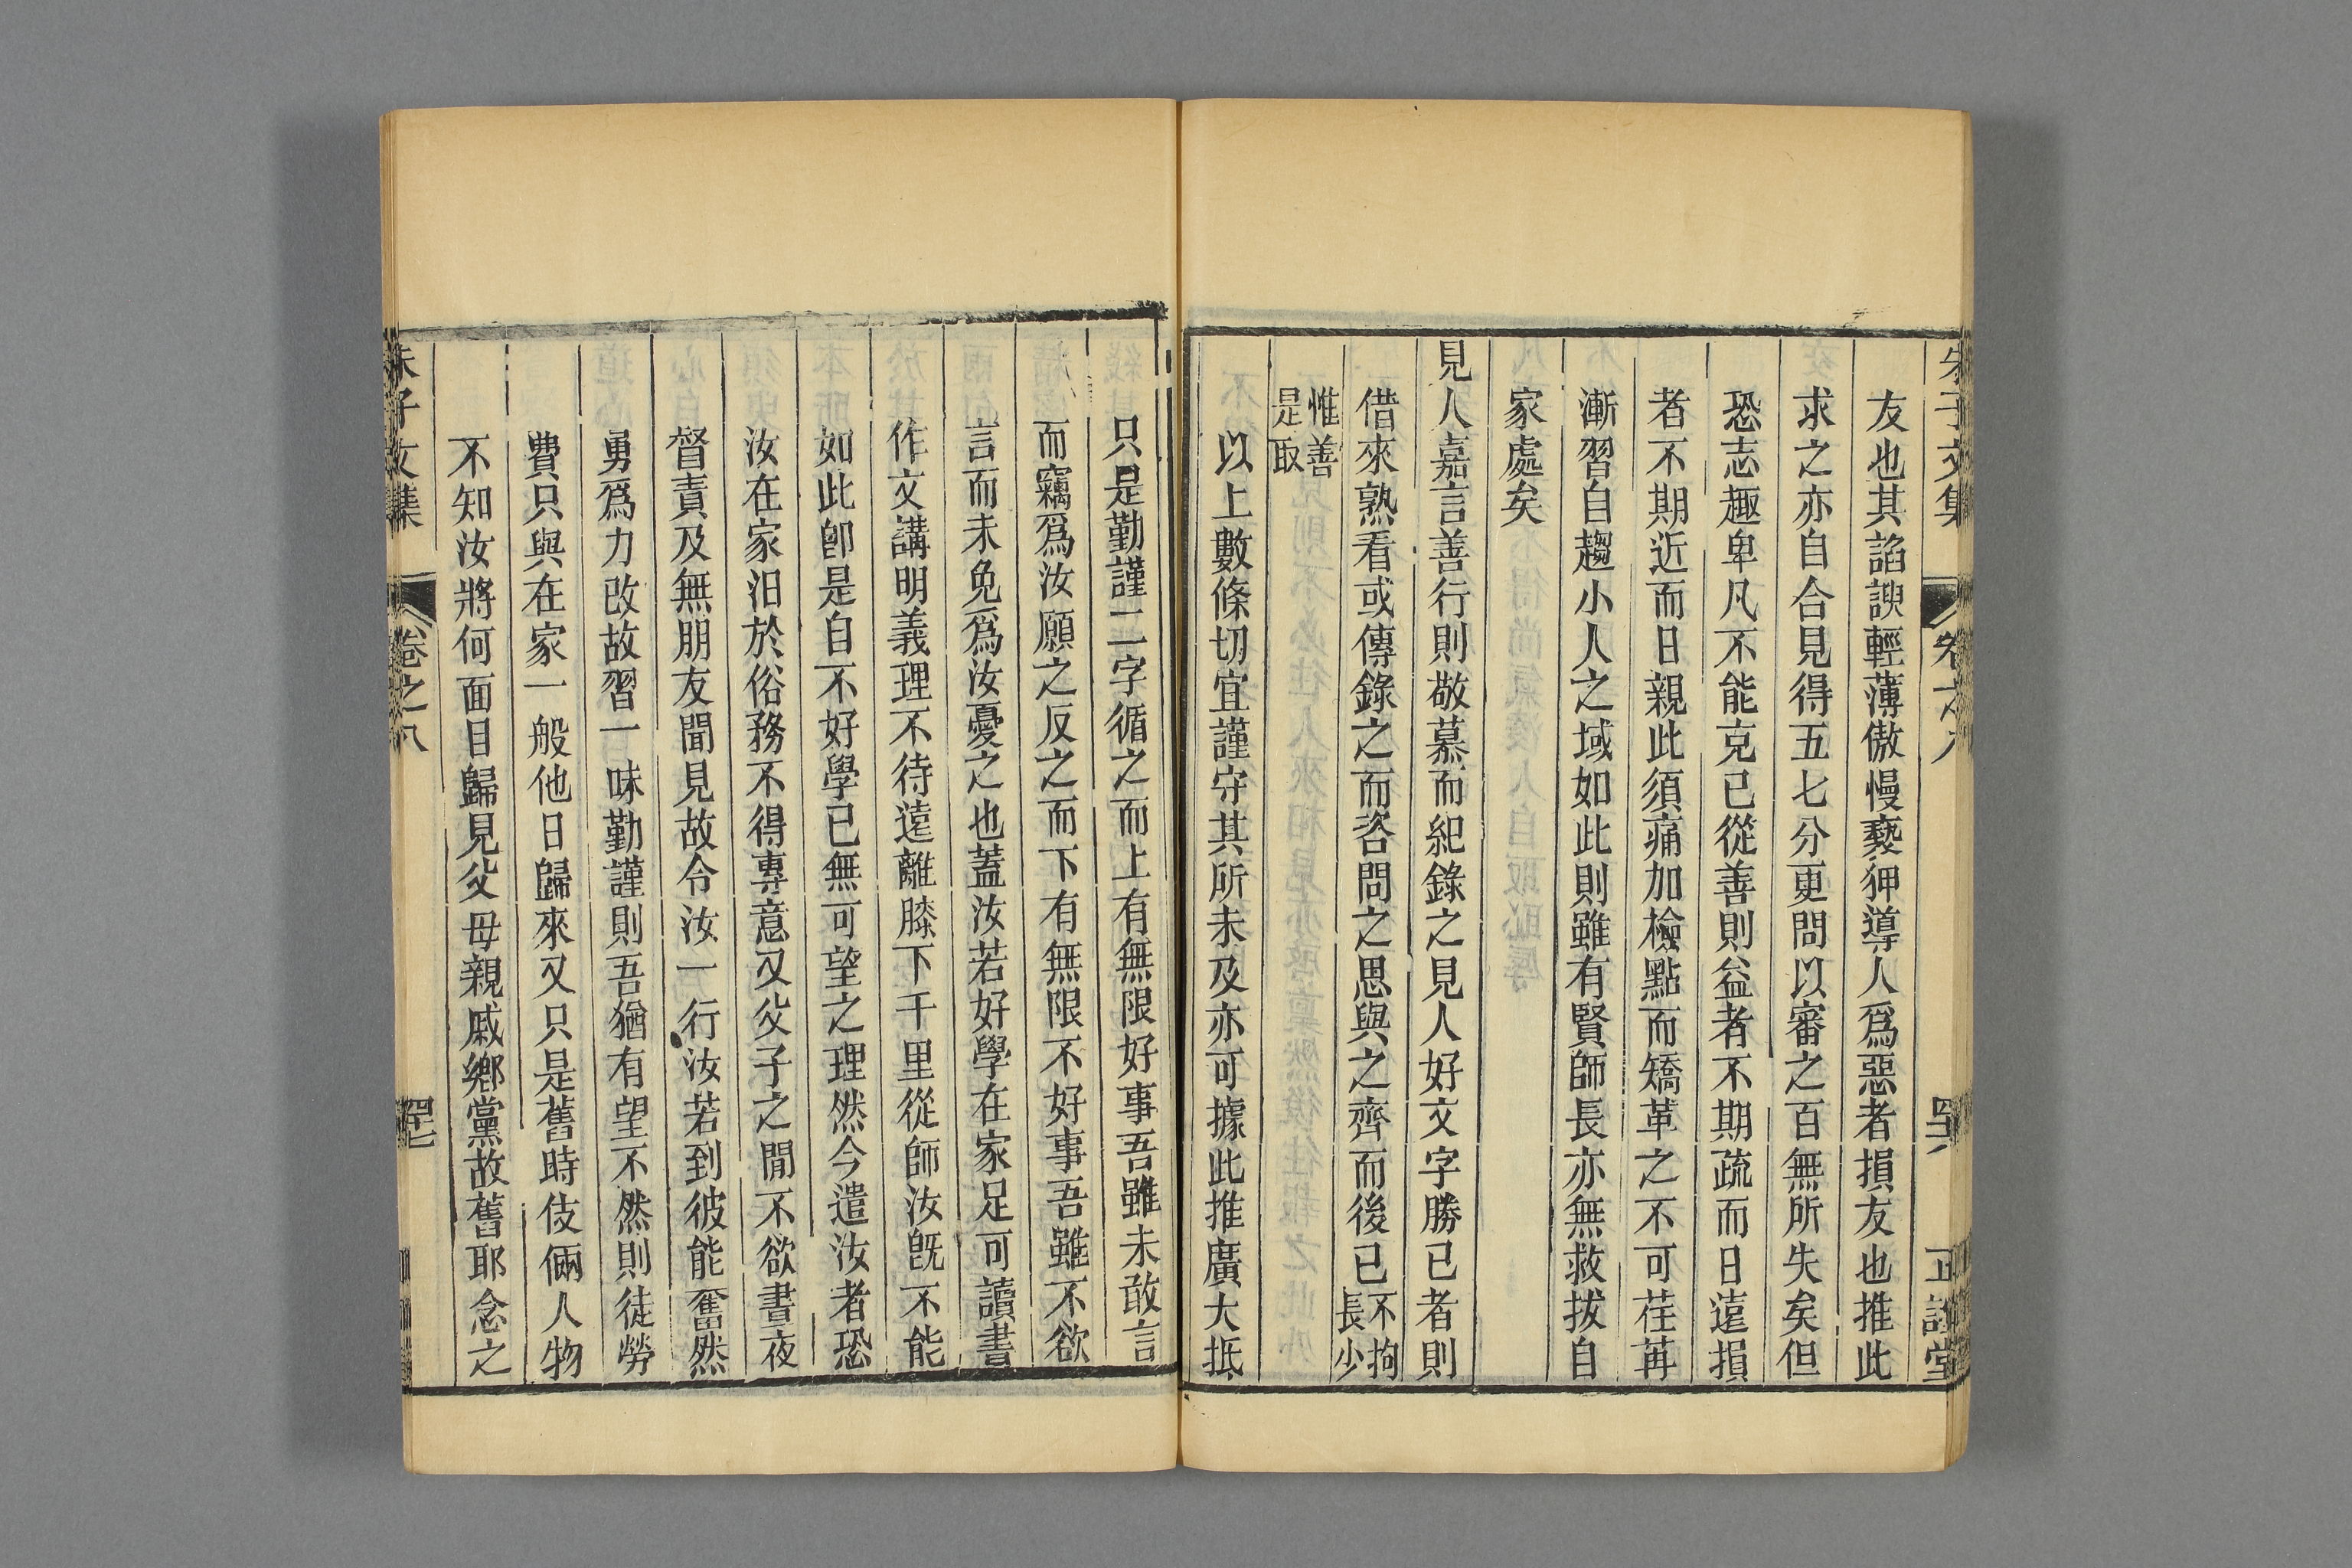 朱子文集 卷之八 四十六 正誼堂
友也其諂諛輕薄傲慢褻狎導人爲惡者損友也推此
求之亦自合見得五七分更問以審之百無所失矣但
恐志趣卑凡不能克已從善則益者不期疏而日遠損
者不期近而日親此須痛加檢點而矯革之不可荏苒
漸習自趨小人之域如此則雖有賢師長亦無救拔自
家處矣
見人嘉言善行則敬慕而紀錄之見人好文字勝已者則
借來熟看或傳錄之而咨問之思與之齊而後已不拘長少
惟善是取
以上數條切宜謹守其所未及亦可據此推廣大抵
只是勤謹二字循之而上有無限好事吾雖未敢言
而竊爲汝願之反之而下有無限不好事吾雖不欲
言而未免爲汝憂之也蓋汝若好學在家足可讀書
作文講明義理不待遠離膝下千里從師汝旣不能
如此卽是自不好學已無可望之理然今遣汝者恐
汝在家汨於俗務不得專意又父子之閒不欲晝夜
督責及無朋友聞見故令汝一行汝若到彼能奮然
勇爲力改故習一味勤謹則吾猶有望不然則徒勞
費只與在家一般他日歸來又只是舊時伎倆人物
不知汝將何面目歸見父母親戚鄉黨故舊耶念之
朱子文集 卷之八 四十七